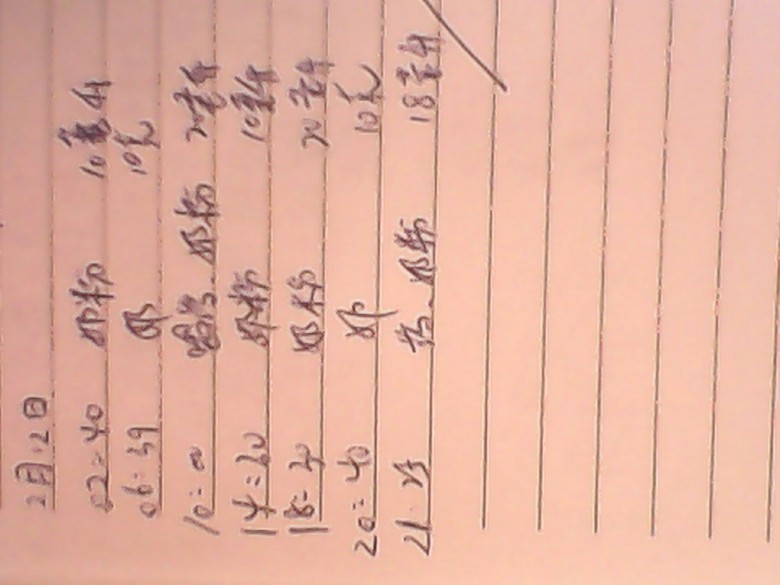 2月12日
02:40 奶粉 10毫升
06:39 奶 10元
10:00 奶粉 20毫升
14:30 奶粉 10毫升
18:30 奶粉 20毫升
20:40 奶 10元
21: 奶粉 18毫升